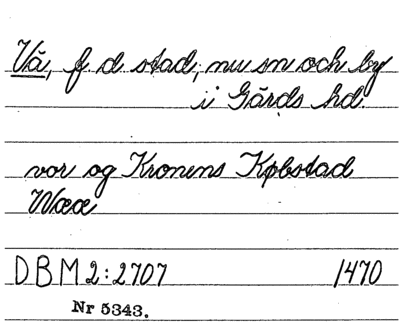 Vä, f d stad, nu sn och by
i Gärds hd.
vor og Kronens Købstad
Wææ
DBM 2:2707 1470
Nr 5343.